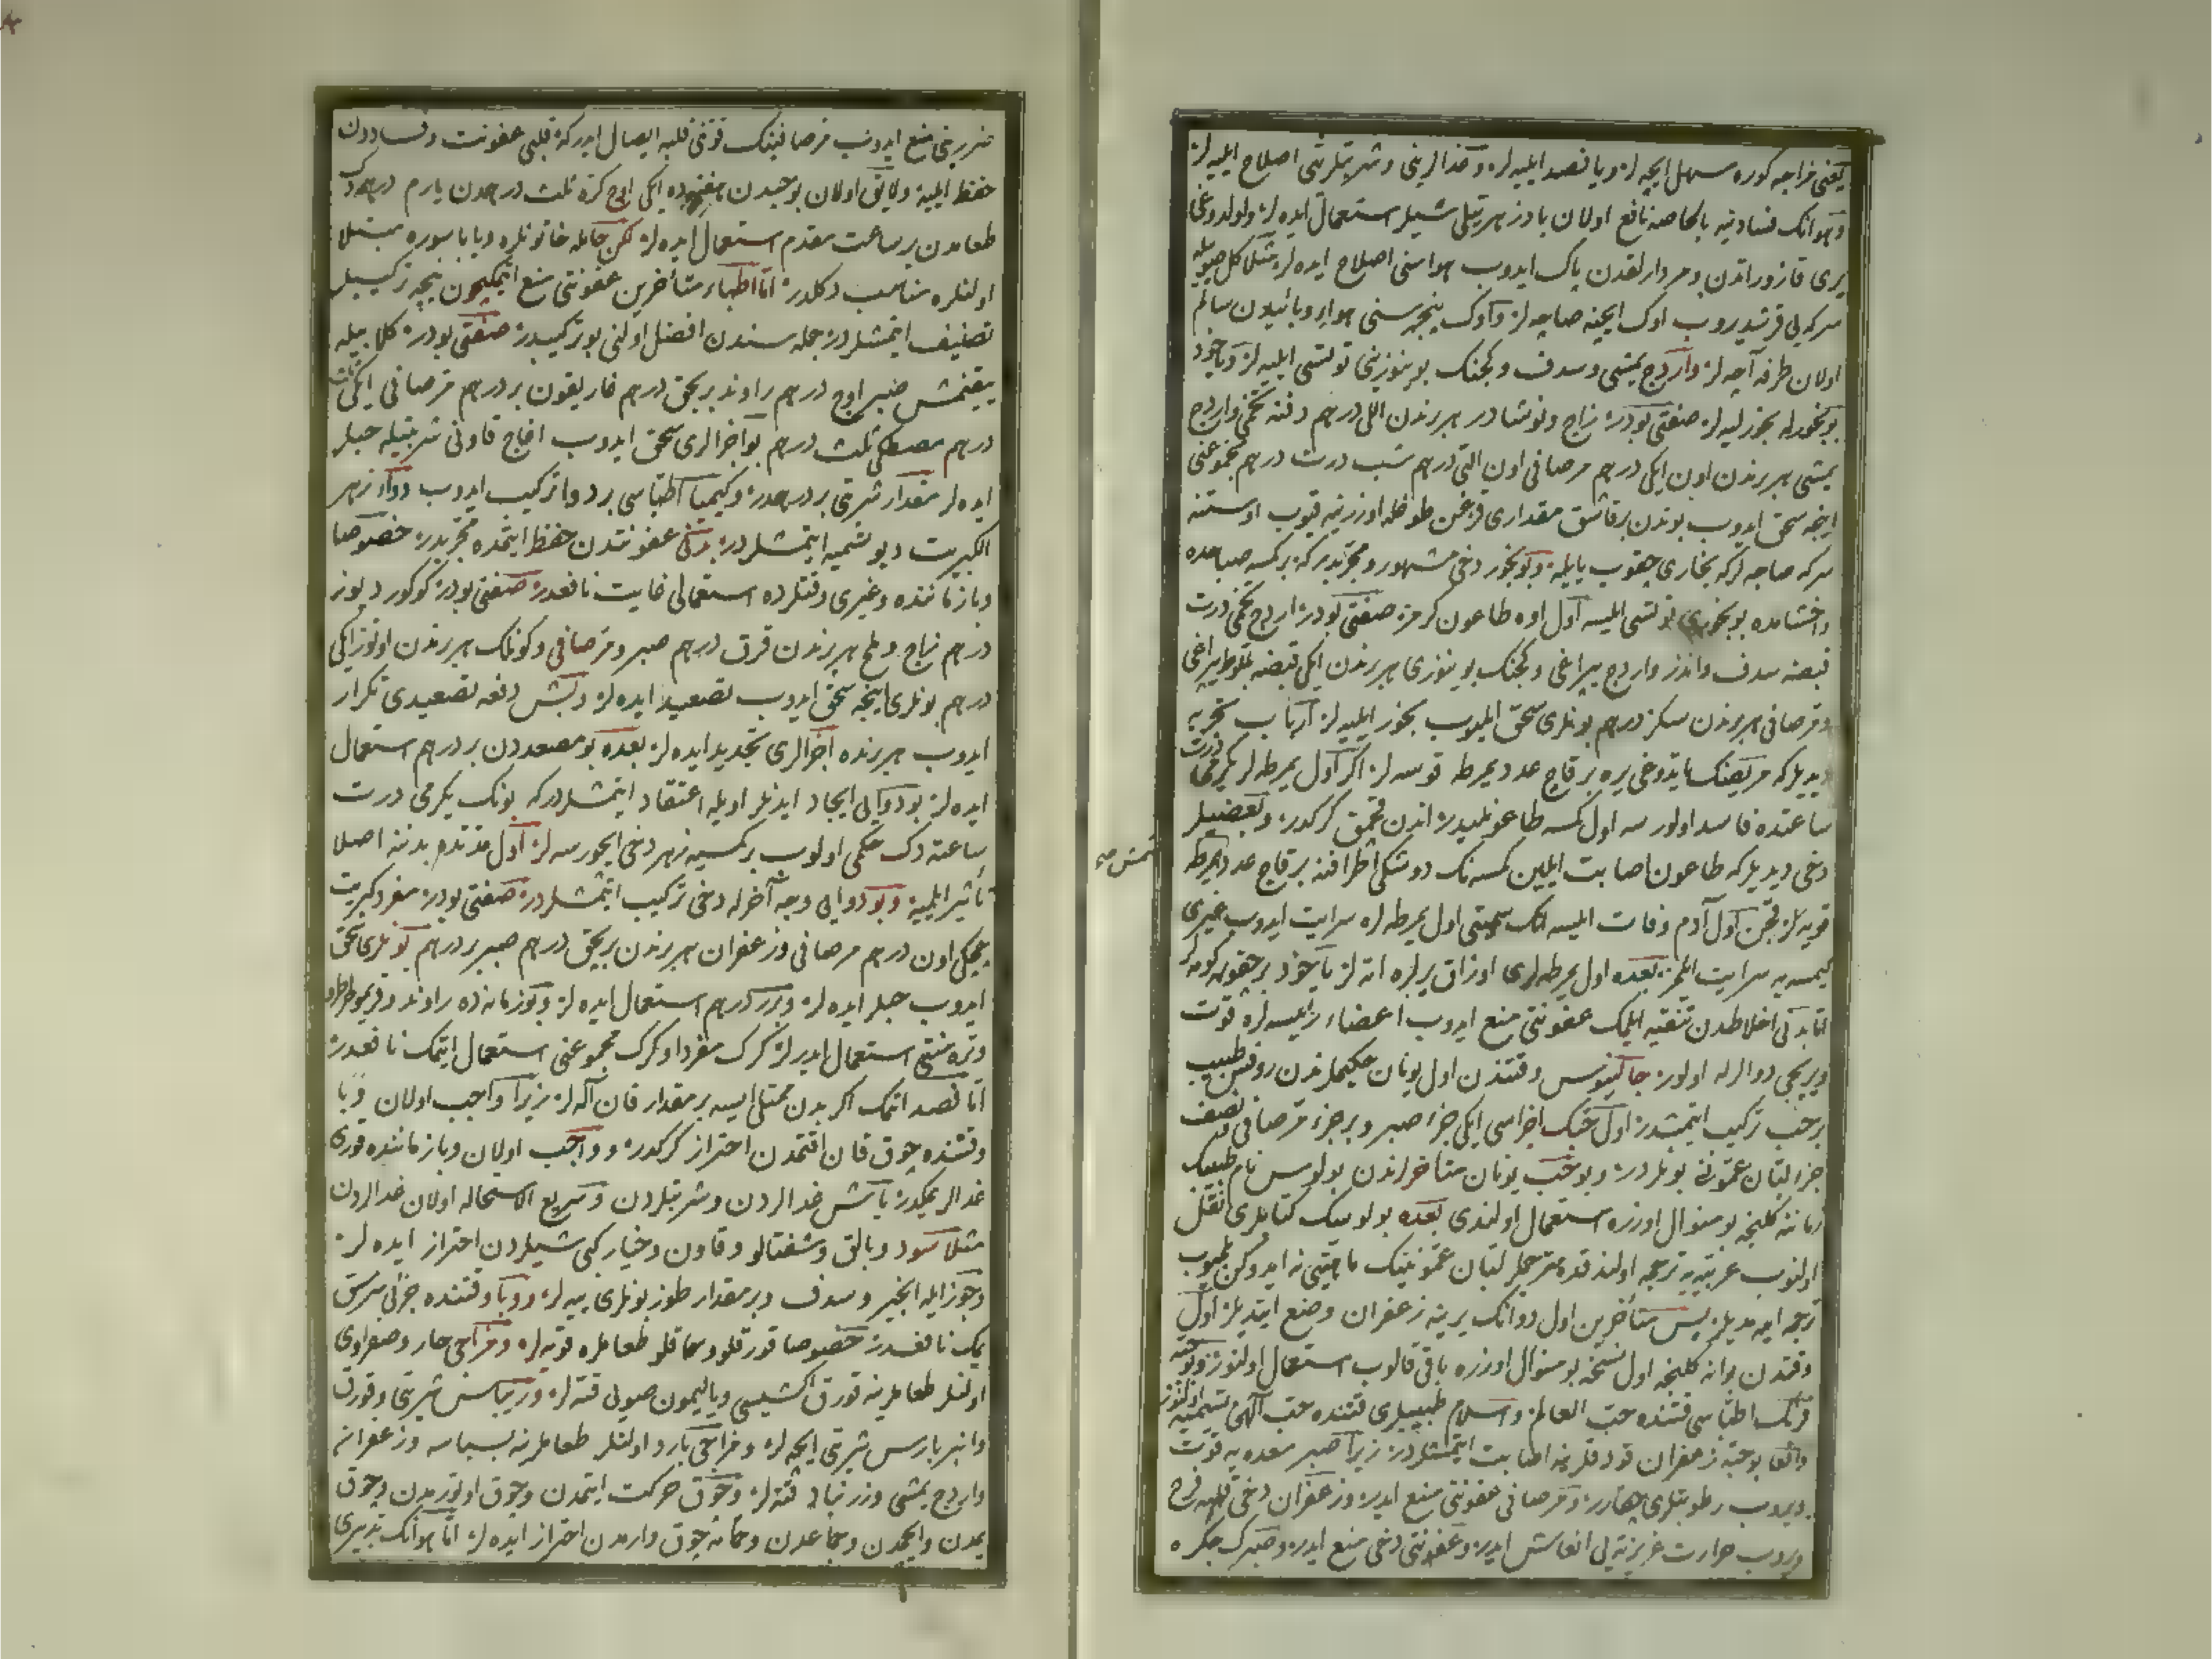 یعنی مزاجه کوره مسهل ایچه‌لر ویا فصد ایلیه‌لر وغذالرینی وشربتلرینی اصلاح ایلیه‌لر
وهوانك فسادینه بالخاصه نافع اولان پادزهرتیلی شیلر استعمال ایده‌لر واولدوغی
یری قاذوراتدن ومردارلقدن پاك ایدوب هواسنی اصلاح ایده‌لر مثلا کل صویله
سرکه‌یی قرشدیروب اوك ایچنه صاچه‌لر واوك پنجره‌سنی هواء وبائیدن سالم
اولان طرفه آچه‌لر واردج یمشی وسدف وکچینك بوینوزینی توتسی ایلیه‌لر ویاخود
بو بخورله بخورلیه‌لر صفتی بودر زاج ونوشادر هر برندن اللی درهم دفنه تخمی واردج
یمشی هر برندن اون ایکی درهم مرصافی اون التی درهم شب درت درهم مجموعنی
اینجه سحق ایدوب بوندن بر قاشق مقداری قزغن طوغله اوزرینه قیوب اوستنه
سرکه صاچه‌لرکه بخاری چقوب یاییله وبو بخور دخی مشهور ومجربدرکه بر کسه صباحده
واخشامده بو بخوری توتسی ایلیسه اول اوه طاعون کرمز صفتی بودر اردج تخمی درت
قبضه سدف واندز واردج یپراغی وکچینك بوینوزی هر برندن ایکی قبضه بلوط یپراغی
ومرصافی هر برندن سکز درهم بونلری سحق ایلیوب بخور ایلیه‌لر ارباب تجربه
دیدیلرکه مریضنك یاتدوغی یره بر قاچ عدد یمرطه قوسه‌لر اکر اول یمرطه‌لر یکرمی درت
ساعتده فاسد اولورسه اول کسه طاعونلیدر اندن قچمق کرکدر وبعضیلر
دخی دیدیلرکه طاعون اصابت ایلین کسه‌نك دوشکی اطرافنه بر قاچ عدد یمرطه
قویه‌لر قچن اول آدم وفات ایلیسه انك سمیتی اول یمرطه‌لره سرایت ایدوب غیری
کیمسیه سرایت ایلمز بعده اول یمرطه‌لری اوزاق یرلره اته‌لر یاخود بر چقوره کومه‌لر
اما بدنی اخلاطدن تنقیه ایلمك عفونتی منع ایدوب اعضاء رئیسه‌لره قوت
ویریجی دوالرله اولور جالینوس وقتندن اول یونان حکیملرندن روفس طبیب
بر حب ترکیب ایتمشدر اول حبك اجزاسی ایکی جزء صبر وبر جزء مرصافی ونصف
جزء لبان عمونی بونلردر وبو حب یونان متاخرلرندن بولوس نام طبیبك
زماننه کلنجه بو منوال اوزره استعمال اولندی بعده بولوسك کتابلری نقل
اولنوب عربیه ترجمه اولندقده مترجملر لبان عمونینك ماهیتی نه ایدوکن بلیوب
ترجمه ایده‌مدیلر پس متاخرین اول دوانك یرینه زعفران وضع ایتدیلر اول
وقتدن بوانه کلنجه اول نسخه بو منوال اوزره باقی قالوب استعمال اولنور وبو حبه
فرنك اطباسی قتنده حب العالم واسلام طبیبلری قتنده حب آلهی تسمیه اولنور
واقعا بو حبه زعفران قودقلرینه اصابت ایتمشلردر زیرا صبر معده‌یه قوت
ویروب رطوبتلری چقارر ومرصافی عفونتی منع ایدر وزعفران دخی قلبه فرح
ویروب حرارت غریزیه‌یی انعاش ایدر وعفونتی دخی منع ایدر وصبرك جکره
ضررینی منع ایدوب مرصافینك قوتنی قلبه ایصال ایدرکه قلبی عفونت وفساددن
حفظ ایلیه ولایق اولان بو حبدن هفته‌ده ایکی اوچ کره ثلث درهمدن یارم درهمه دك
طعامدن بر ساعت مقدم استعمال ایده‌لر لکن حامله خاتونلره ویا باسوره مبتلا
اولنلره مناسب دکلدر اما اطباء متأخرین عفونتی منع ایتمکیچون نیجه ترکیبلر
تصنیف ایتمشلردر جمله‌سندن افضل اولنی بو ترکیبدر صفتی بودر کلابیله
ییقنمش صبر اوچ درهم راوند بر بچق درهم غاریقون بر درهم مرصافی ایکی ثلث
درهم مصطکی ثلث درهم بو اجزالری سحق ایدوب اغاج قاونی شربتیله حبلر
ایده‌لر مقدار شربتی بر درهمدر وکیمیا اطباسی بر دوا ترکیب ایدوب دواء زهر
الکبریت دیو تسمیه ایتمشلردر بدنی عفونتدن حفظ ایتمده مجربدر خصوصا
وبا زماننده وغیری وقتلرده استعمالی غایت نافعدر صفتی بودر کوکورد یوز
درهم زاج وملح هر برندن قرق درهم صبر ومرصافی وکونلك هر برندن اوتوز ایکی
درهم بونلری اینجه سحق ایدوب تصعید ایده‌لر وبش دفعه تصعیدی تکرار
ایدوب هر برنده اجزالری تجدید ایده‌لر بعده بو مصعددن بر درهم استعمال
ایده‌لر بو دوایی ایجاد ایدنلر اویله اعتقاد ایتمشلردرکه بونك یکرمی درت
ساعته دك حکمی اولوب بر کمسیه زهر دخی ایچورسه‌لر اول مدتده بدننه اصلا
تأثیر ایلمیه وبو دوایی وجه آخرله دخی ترکیب ایتمشلردر صفتی بودر مفرد کبریت
چیچکی اون درهم مرصافی وزعفران هر برندن بر بچق درهم صبر بر درهم بونلری سحق
ایدوب حبلر ایده‌لر وبرر درهم استعمال ایده‌لر وبو زمانده راوند وقریمو طرطرو
وتره‌منتی استعمال ایدرلر کرك مفردا وکرك مجموعنی استعمال ایتمك نافعدر
اما فصد اتمك اکر بدن ممتلی ایسه بر مقدار قان آله‌لر زیرا واجب اولان وبا
وقتنده چوق قان اقتمدن احتراز کرکدر وواجب اولان وبا زماننده قوری
غذالر یمکدر یاش غذالردن وشربتلردن وسریع الاستحاله اولان غذالردن
مثلا سود وبالق وشفتالو وقاون وخیار کبی شیلردن احتراز ایده‌لر
وجوز ایله انجیر وسدف وبر مقدار طوز بونلری ییه‌لر ووبا وقتنده جزئی سرمسق
یمك نافعدر خصوصا قورقلو وسماقلو طعاملره قویه‌لر ومزاجی حار وصفراوی
اولنلر طعاملرینه قورق اکشیسی ویا لیمون صویی قته‌لر وریباس شربتی وقورق
وانبرباریس شربتی ایچه‌لر ومزاجی بارد اولنلر طعاملرینه بسباسه وزعفرانه
واردج یمشی وزرنباد قته‌لر وچوق حرکت ایتمدن وچوق اوتورمدن وچوق
یمدن وایچمدن وجماعدن وحمامه چوق وارمدن احتراز ایده‌لر اما هوانك تدبیری